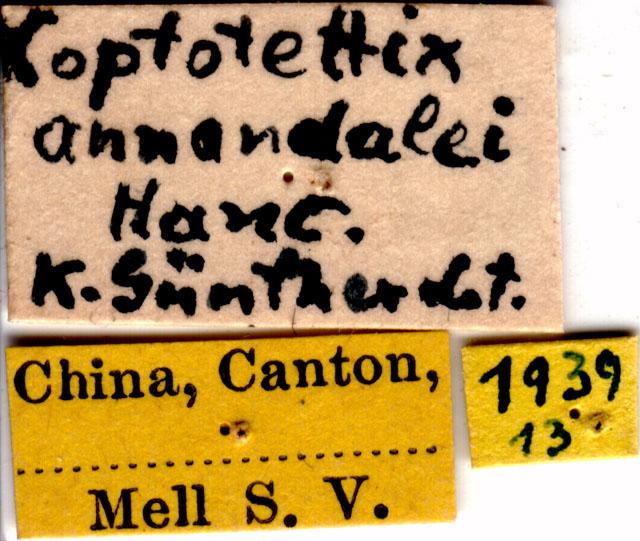 Coptotettix
annandalei
Hanc.
K. Günther det.
China, Canton,
Mell S. V.
1939
13